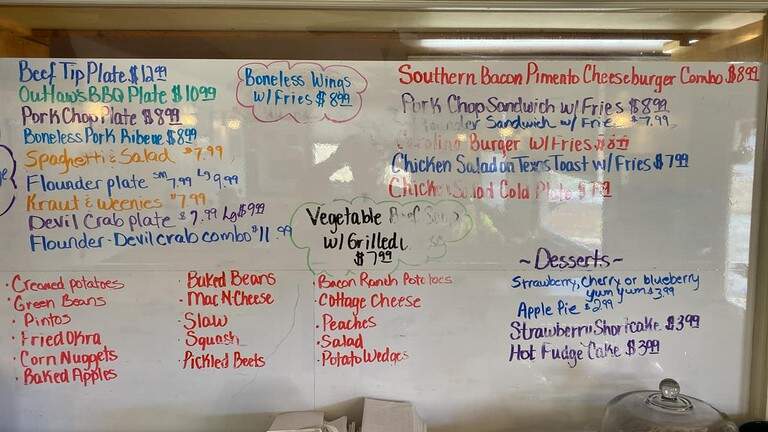 Beef Tip Plate $12.99
Outlaw's BBQ Plate $10.99
Pork Chop Plate $8.99
Boneless Pork Ribeye $8.99
Spaghetti & Salad $7.99
Flounder plate sm 7.99 Lg 9.99
Kraut & Weenies $7.99
Devil Crab plate $7.99 Lg $9.99
Flounder-Devil crab combo $11.99
Boneless Wings
w/ Fries $8.99
Southern Bacon Pimento Cheeseburger Combo $8.99
Pork Chop Sandwich w/ Fries $8.99
Flounder Sandwich w/ Frie $7.99
Carolina Burger w/ Fries
Chicken Salad on Texas Toast w/ Fries $7.99
Chicken Salad Cold Plate
Vegetable Beef Soup
w/ Grilled
$7.99
· Creamed potatoes
· Green Beans
· Pintos
· Fried Okra
· Corn Nuggets
· Baked Apples
· Baked Beans
· Mac N Cheese
· Slaw
· Squash
· Pickled Beets
· Bacon Ranch Potatoes
· Cottage Cheese
· Peaches
· Salad
· Potato Wedges
~Desserts~
Strawberry, Cherry or blueberry
yum yum $3.99
Apple Pie $2.99
Strawberry Shortcake $3.99
Hot Fudge Cake $3.99